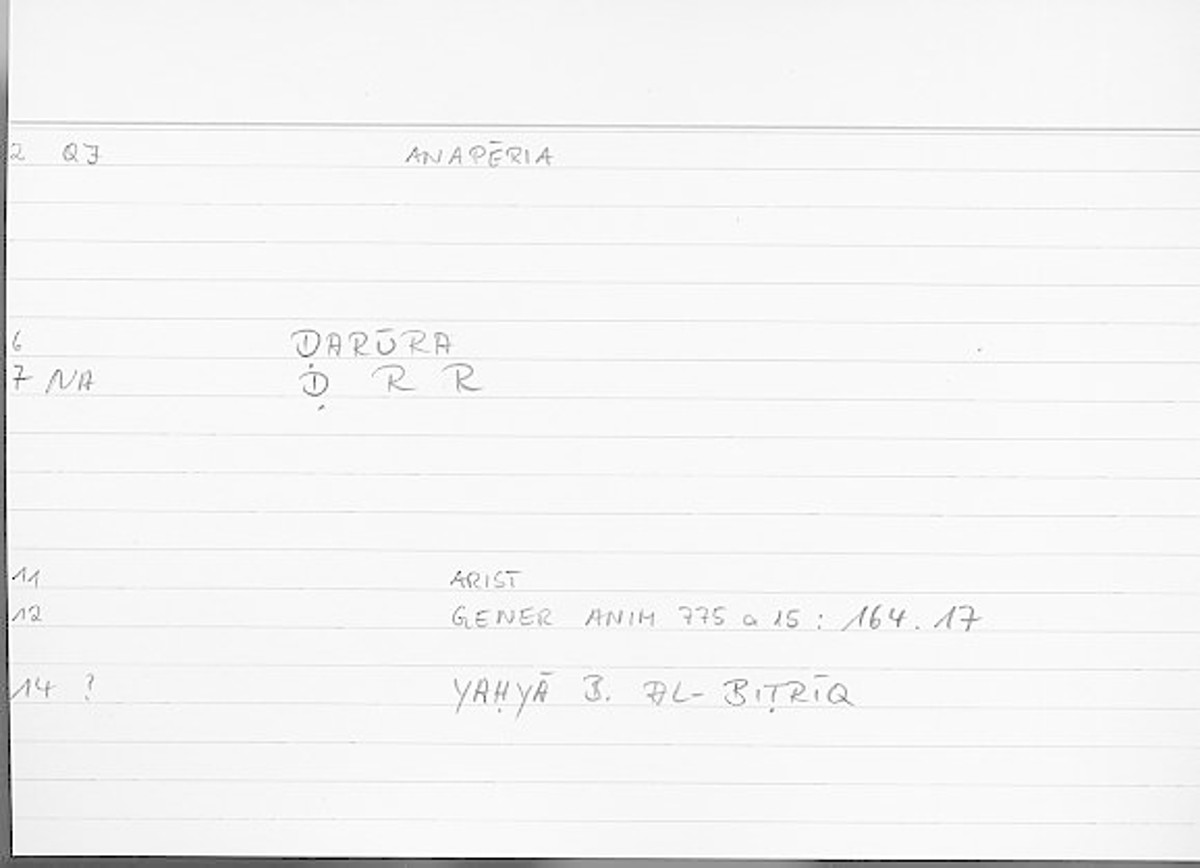 2 QJ ANAPĒRIA
6 ḌARŪRA
7 NA Ḍ R R
11 ARIST
12 GENER ANIM 775 a 15 : 164.17
14 ? YAḤYĀ B. AL-BIṬRĪQ